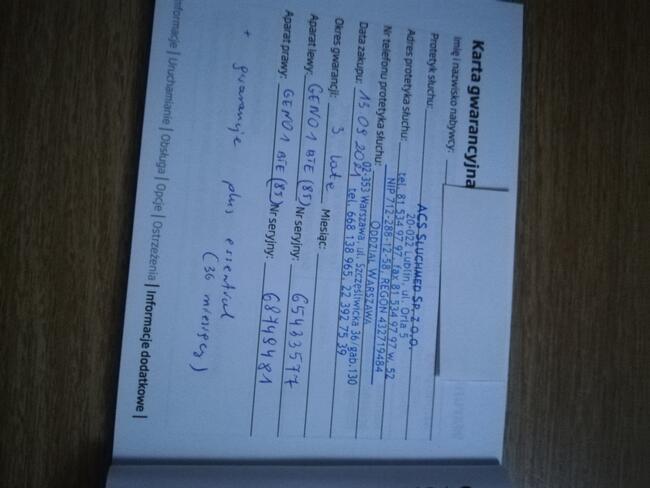 Karta gwarancyjna
Imię i nazwisko nabywcy:
Protetyk słuchu:
ACS SŁUCHMED SP. Z O.O.
20-022 Lublin, ul. Orla 5
Adres protetyka słuchu: tel. 81 534 97 97, fax 81 534 97 97 w. 52
NIP 712-288-12-58, REGON 432719484
Nr telefonu protetyka słuchu: ODDZIAŁ WARSZAWA
02-353 Warszawa, ul. Szczęśliwicka 36/gab.130
Data zakupu: 15 09 2021 tel. 668 138 965, 22 392 75 39
Okres gwarancji: 3 lata Miesiąc:
Aparat lewy: GENO1 BTE (85) Nr seryjny: 65483577
Aparat prawy: GENO1 BTE (85) Nr seryjny: 68748481
+ gwarancje plus essential
(36 miesięcy)
Informacje | Uruchamianie | Obsługa | Opcje | Ostrzeżenia | Informacje dodatkowe |